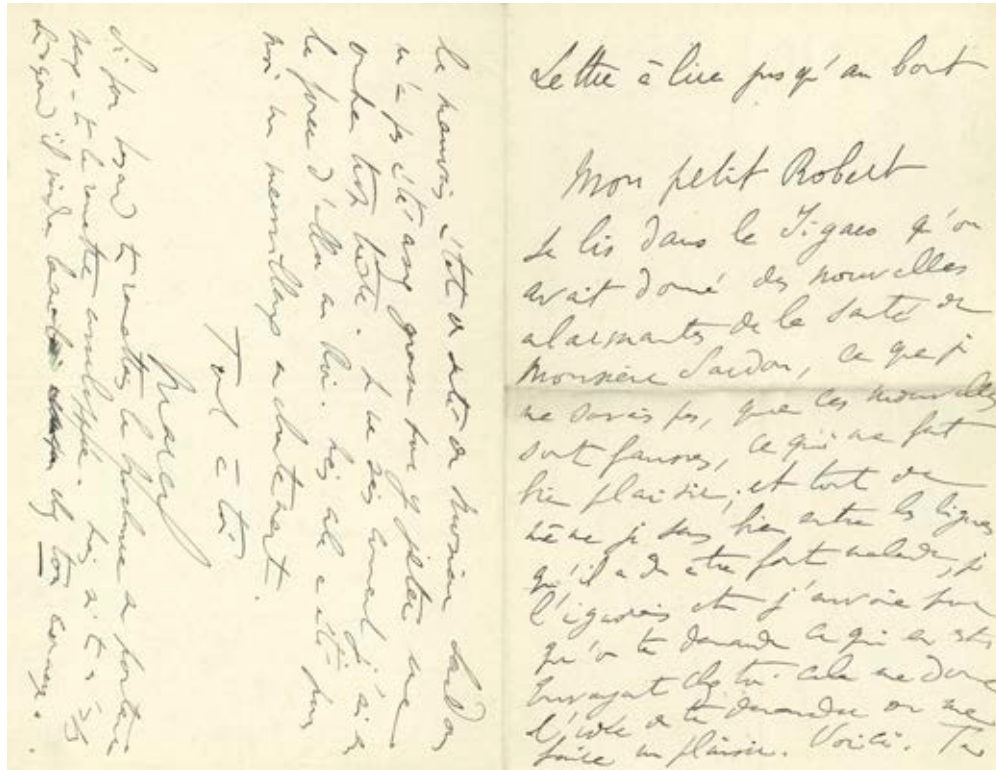 Lettre à lire jusqu'au bout
Mon petit Robert
Je lis dans le Figaro qu'on
avait donné des nouvelles
alarmantes de la santé de
Monsieur Sardou, ce que je
ne savais pas, que ces nouvelles
sont fausses, ce qui me fait
bien plaisir; et tout de
même je sens bien entre les lignes
qu'il a dû être fort malade, je
l'ignorais et j'envoie pour
qu'on te demande ce qui en est
Envoyant chez toi cela me donne
l'idée de te demander de me
faire un plaisir. Voilà. Tu
le mauvais état de santé de Monsieur Sardou
n'a pas été assez grave pour y jeter une
ombre trop triste. Je ne sais comment j'ai eu
la force d'aller au lui. Mais cela a été pour
moi un merveilleux enchantement.
Tout à toi
Marcel
Si ton tu remettre la à porteur
sous enveloppe. Mais si tu
il chez ton concierge.